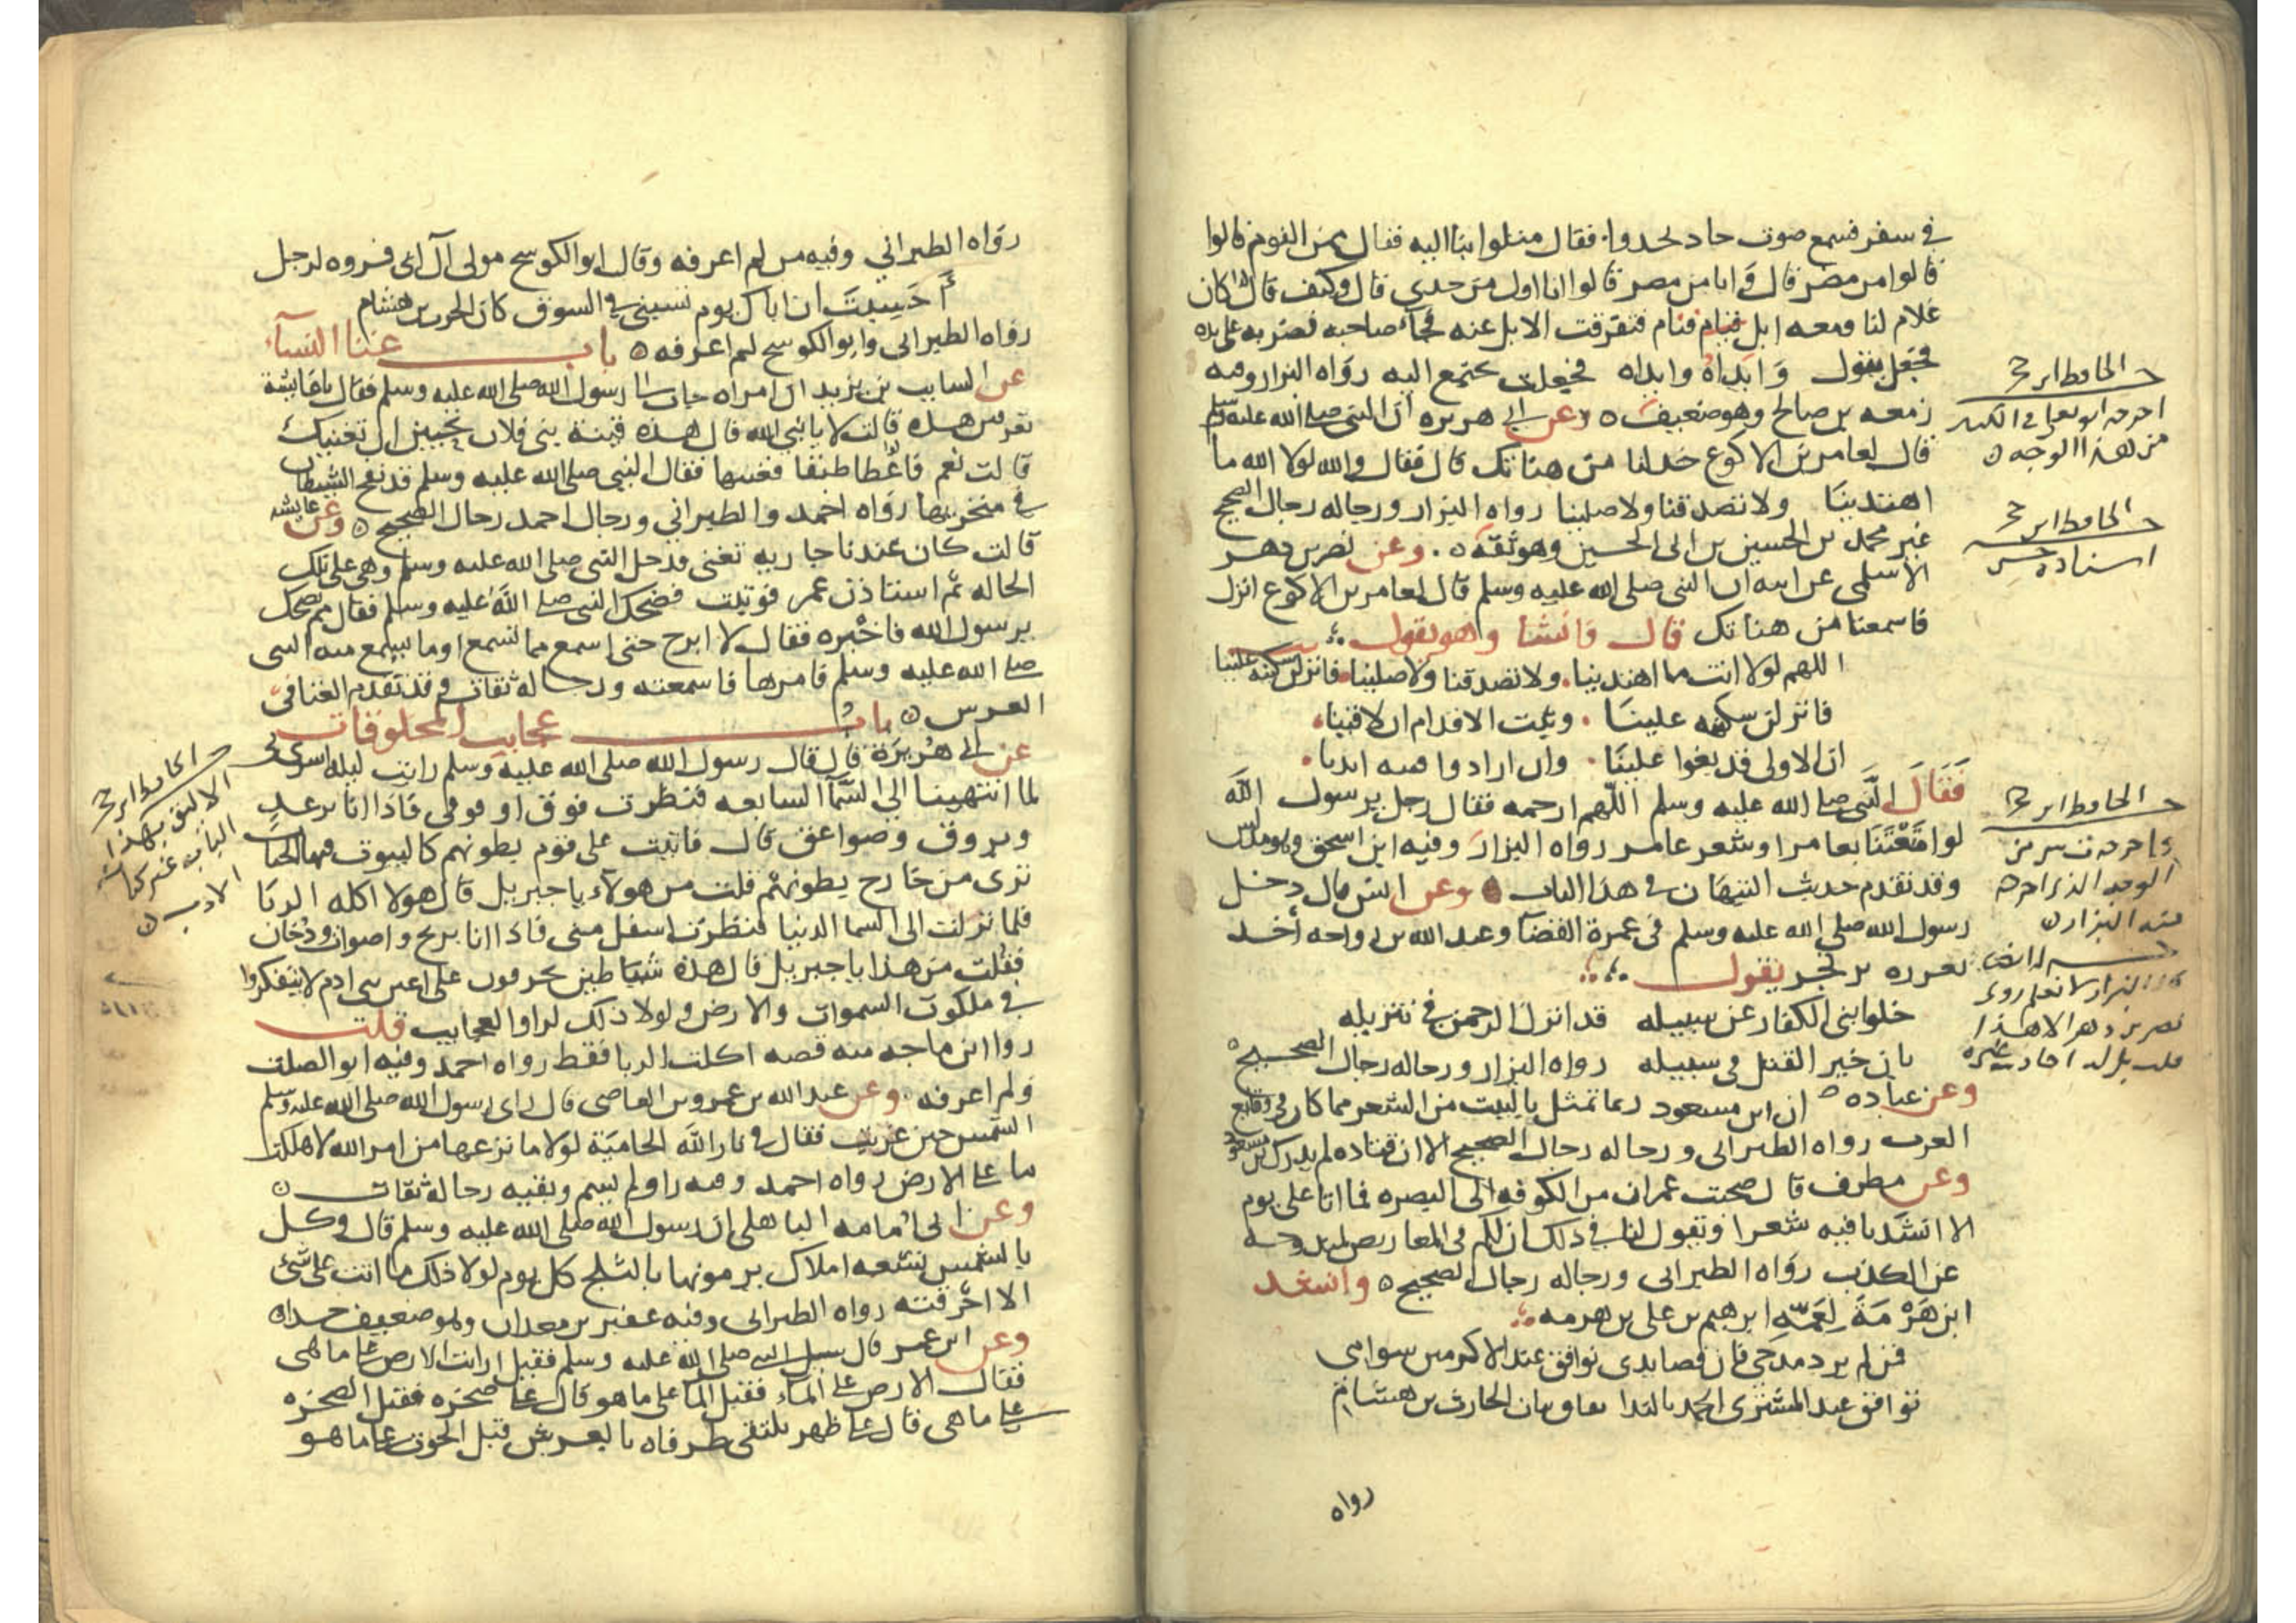 في سفر فسمع صوت حاد يحدوا فقال ميلوا بنا اليه فقال ممن القوم قالوا
قالوا من مضر قال وانا من مضر قالوا انا اول من حدي قال وكيف قال كان
غلام لنا ومعه ابل فنام فتفرقت الابل عنه فجاء صاحبه فضربه على يده
فجعل يقول وايداه وايداه فجعلت تجتمع اليه رواه البزار وفيه
زمعه بن صالح وهو ضعيف ٥ وعن ابي هريره ان النبي صلى الله عليه وسلم
قال لعامر بن الاكوع خد لنا من هناتك قال فقال والله لولا الله ما
اهتدينا ولا تصدقنا ولا صلينا رواه البزار ورجاله رجال الصحيح
غير محمد بن الحسين بن ابى الحسين وهو ثقة ٥ وعن نصر بن دهر
الاسلمى عن ابيه ان النبى صلى الله عليه وسلم قال لعامر بن الاكوع انزل
فاسمعنا من هناتك قال فانشا وهو يقول
اللهم لولا انت ما اهتدينا ولا تصدقنا ولا صلينا فانزلن سكينه علينا
فانزلن سكينه علينا وثبت الاقدام ان لاقينا
ان الاولى قد بغوا علينا وان ارادوا فتنه ابينا
فقال النبي صلى الله عليه وسلم اللهم ارحمه فقال رجل يرسول الله
لوا متعتنا بعامر وشعر عامر رواه البزار وفيه ابن اسحق وهو مدلس
وقد تقدم حديث التيهان في هذا الباب ٥ وعن انس قال دخل
رسول الله صلى الله عليه وسلم في عمرة القضا وعبد الله بن رواحه اخذ
بغرزه يرتجز يقول
خلوا بنى الكفار عن سبيله قد انزل الرحمن في تنزيله
بان خير القتل فى سبيله رواه البزار ورجاله رجال الصحيح
وعن ان ابن مسعود ربما تمثل بالبيت من الشعر مما كان في وقايع
العرب رواه الطبرانى ورجاله رجال الصحيح الا ان قتاده لم يدرك ابن مسعود
وعن مطرف قال صحبت عمران من الكوفه الى البصره فما اتا على يوم
الا انشدنا فيه شعرا وتقول لنا في ذلك ان لكم في المعاريض لمندوحه
عن الكذب رواه الطبرانى ورجاله رجال الصحيح ٥ وانشد
ابن هرمة لعمه ابرهيم بن على بن هرمه
فمن لم يرد مدحي فان قصايدى نوافق عند الاكرمين سوامى
نوافق عند المشترى الحمد بالندا نفاق بنات الحارث بن هشام
رواه
الحافظ ابن حجر
اخرجه ابو يعلى في الكبير
من هذا الوجه
الحافظ ابن حجر
اسناده حسن
الحافظ ابن حجر
الوجه الذي اخرجه
منه البزار
نصر بن دهر الا هذا
قلت بل له احاديث غيره
رواه الطبراني وفيه من لم اعرفه وقال ابو الكوسج مولى آل ابى فروه لرجل
احسبت ان اباك يوم تسبني في السوق كان الحرث بن هشام
رواه الطبرانى وابو الكوسج لم اعرفه ٥ باب غنا النساء
عن السايب بن يزيد ان امراه جات الى رسول الله صلى الله عليه وسلم فقال يا عايشة
تعرفين هذه قالت لا يا نبي الله قال هذه قينة بني فلان تحبين ان تغنيك
قالت نعم فاعطاها طبقا فغنتها فقال النبي صلى الله عليه وسلم قد نفخ الشيطان
في منخريها رواه احمد والطبراني ورجال احمد رجال الصحيح ٥ وعن عايشه
قالت كان عندنا جاريه تغنى فدخل النبى صلى الله عليه وسلم وهى على تلك
الحاله ثم استاذن عمر فوثبت فضحك النبي صلى الله عليه وسلم فقال مم تضحك
يرسول الله فاخبره فقال لا ابرح حتى اسمع مما تسمع او ما سمع منه النبى
صلى الله عليه وسلم فامرها فاسمعته ورجاله ثقات وقد تقدم الغنا في
العرس ٥ باب عجايب المخلوقات
عن ابي هريرة قال قال رسول الله صلى الله عليه وسلم رايت ليله اسري بي
لما انتهينا الي السما السابعه فنظرت فوق او فوقى فاذا انا برعد
وبروق وصواعق قال فاتيت على قوم بطونهم كالبيوت فيها الحيات
ترى من خارج بطونهم قلت من هولاء يا جبريل قال هولا اكلة الربا
فلما نزلت الى السما الدنيا فنظرت اسفل منى فاذا انا بريح واصوات ودخان
فقلت من هذا يا جبريل قال هذه شياطين يحرفون على اعين بنى ادم لا يتفكروا
في ملكوت السموات والارض ولولا ذلك لراوا العجايب قلت
روا ابن ماجه منه قصه اكلت الربا فقط رواه احمد وفيه ابو الصلت
ولم اعرفه وعن عبد الله بن عمرو بن العاصى قال راى رسول الله صلى الله عليه وسلم
الشمس حين غربت فقال في نار الله الحامية لولا ما نزعها من امر الله لاهلكت
ما على الارض رواه احمد وفيه راو لم يسم وبقيه رجاله ثقات
وعن ابى امامه الباهلى ان رسول الله صلى الله عليه وسلم قال وكل
بالشمس تسعه املاك يرمونها بالثلج كل يوم لولا ذلك ما اتت على شئ
الا احرقته رواه الطبرانى وفيه عفير بن معدان وهو ضعيف جدا
وعن ابن عمر قال سيل النبى صلى الله عليه وسلم فقيل ارايت الارض على ما هى
فقال الارض على الماء فقيل الما على ما هو قال على صخره فقيل الصخره
على ما هى قال على ظهر يلتقى طرفاه بالعرش قيل الحوت على ما هو
الحافظ ابن حجر
الاليق بهذا
الباب غير كتاب
الادب